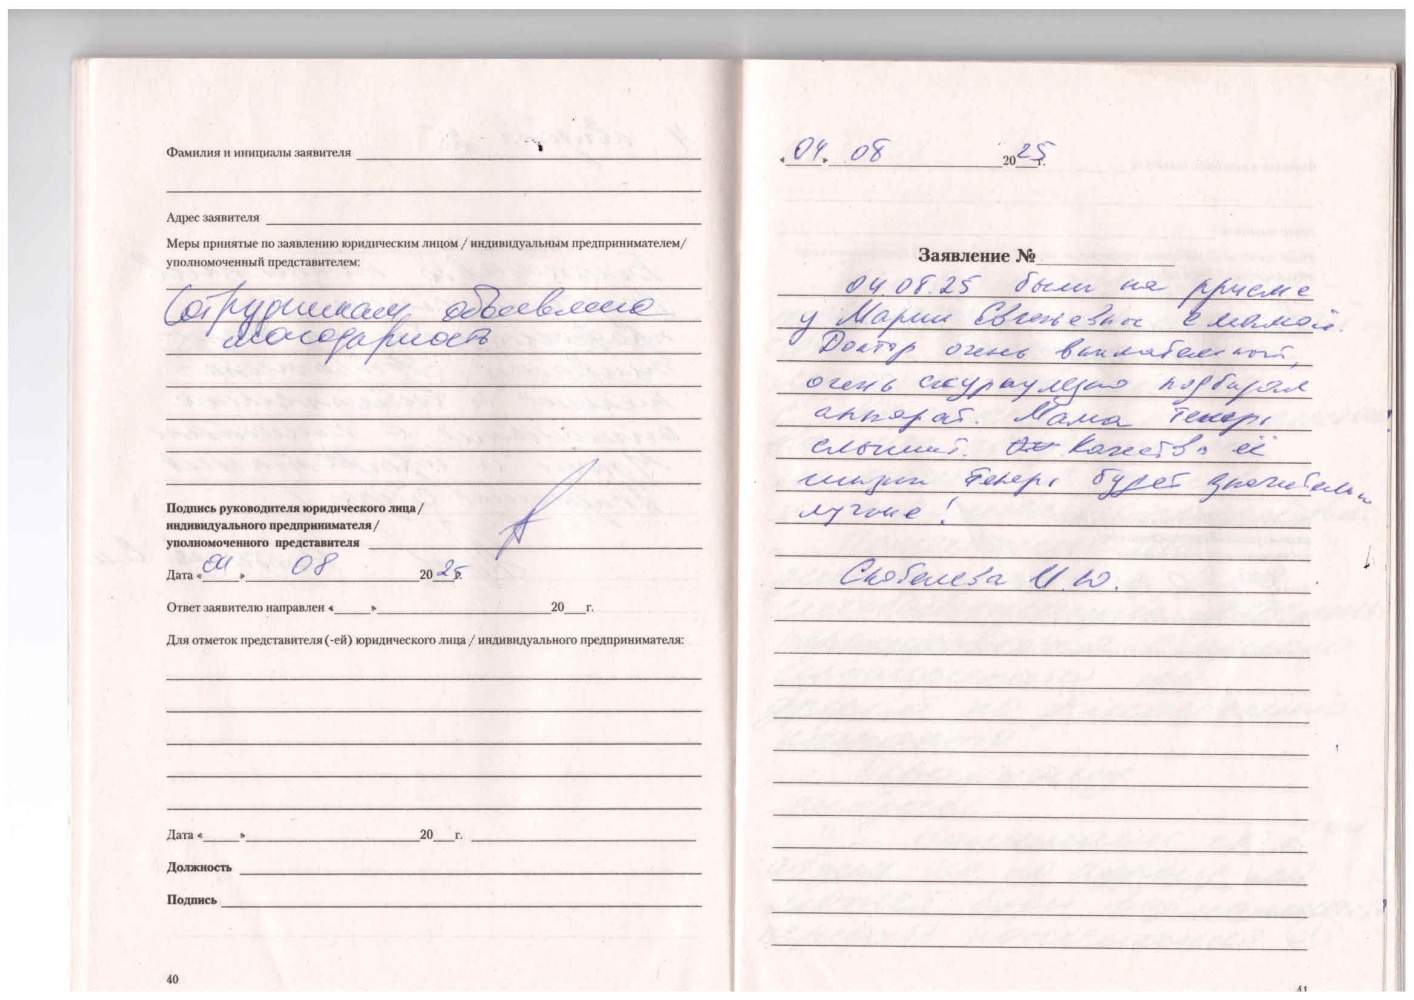 Фамилия и инициалы заявителя
Адрес заявителя
Меры принятые по заявлению юридическим лицом / индивидуальным предпринимателем/
уполномоченный представителем:
Сотрудникам объявлена
благодарность
Подпись руководителя юридического лица/
индивидуального предпринимателя/
уполномоченного представителя
Дата «04» 08 2025г.
Ответ заявителю направлен « » 20 г.
Для отметок представителя (-ей) юридического лица / индивидуального предпринимателя:
Дата « » 20 г.
Должность
Подпись
40
«04» 08 2025г.
Заявление №
04.08.25 были на приеме
у Марии Евгеньевны с мамой.
Доктор очень внимательный,
очень скурпулезно подбирал
аппарат. Мама теперь
слышит. Качество её
жизни теперь будет значительно
лучше!
Скобелева И.Ю.
41